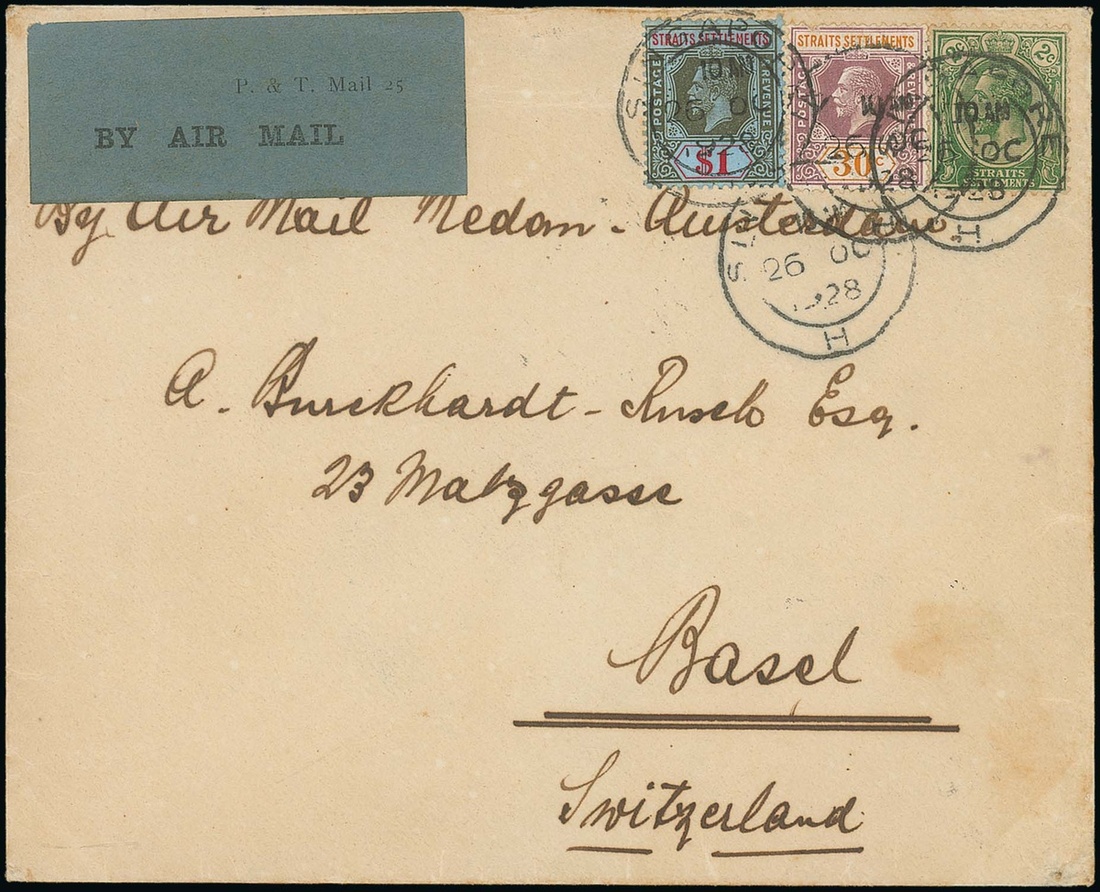 P. & T. Mail 25
BY AIR MAIL
STRAITS SETTLEMENTS
POSTAGE
REVENUE
$1
STRAITS SETTLEMENTS
POSTAGE
REVENUE
30c
2c 2c
STRAITS
SETTLEMENTS
10 AM
26 OC
10 AM
26 OC
1928
H
26 OC
1928
H
By Air Mail Medan - Amsterdam
A. Burckhardt - Rusch Esq.
23 Malzgasse
Basel
Switzerland